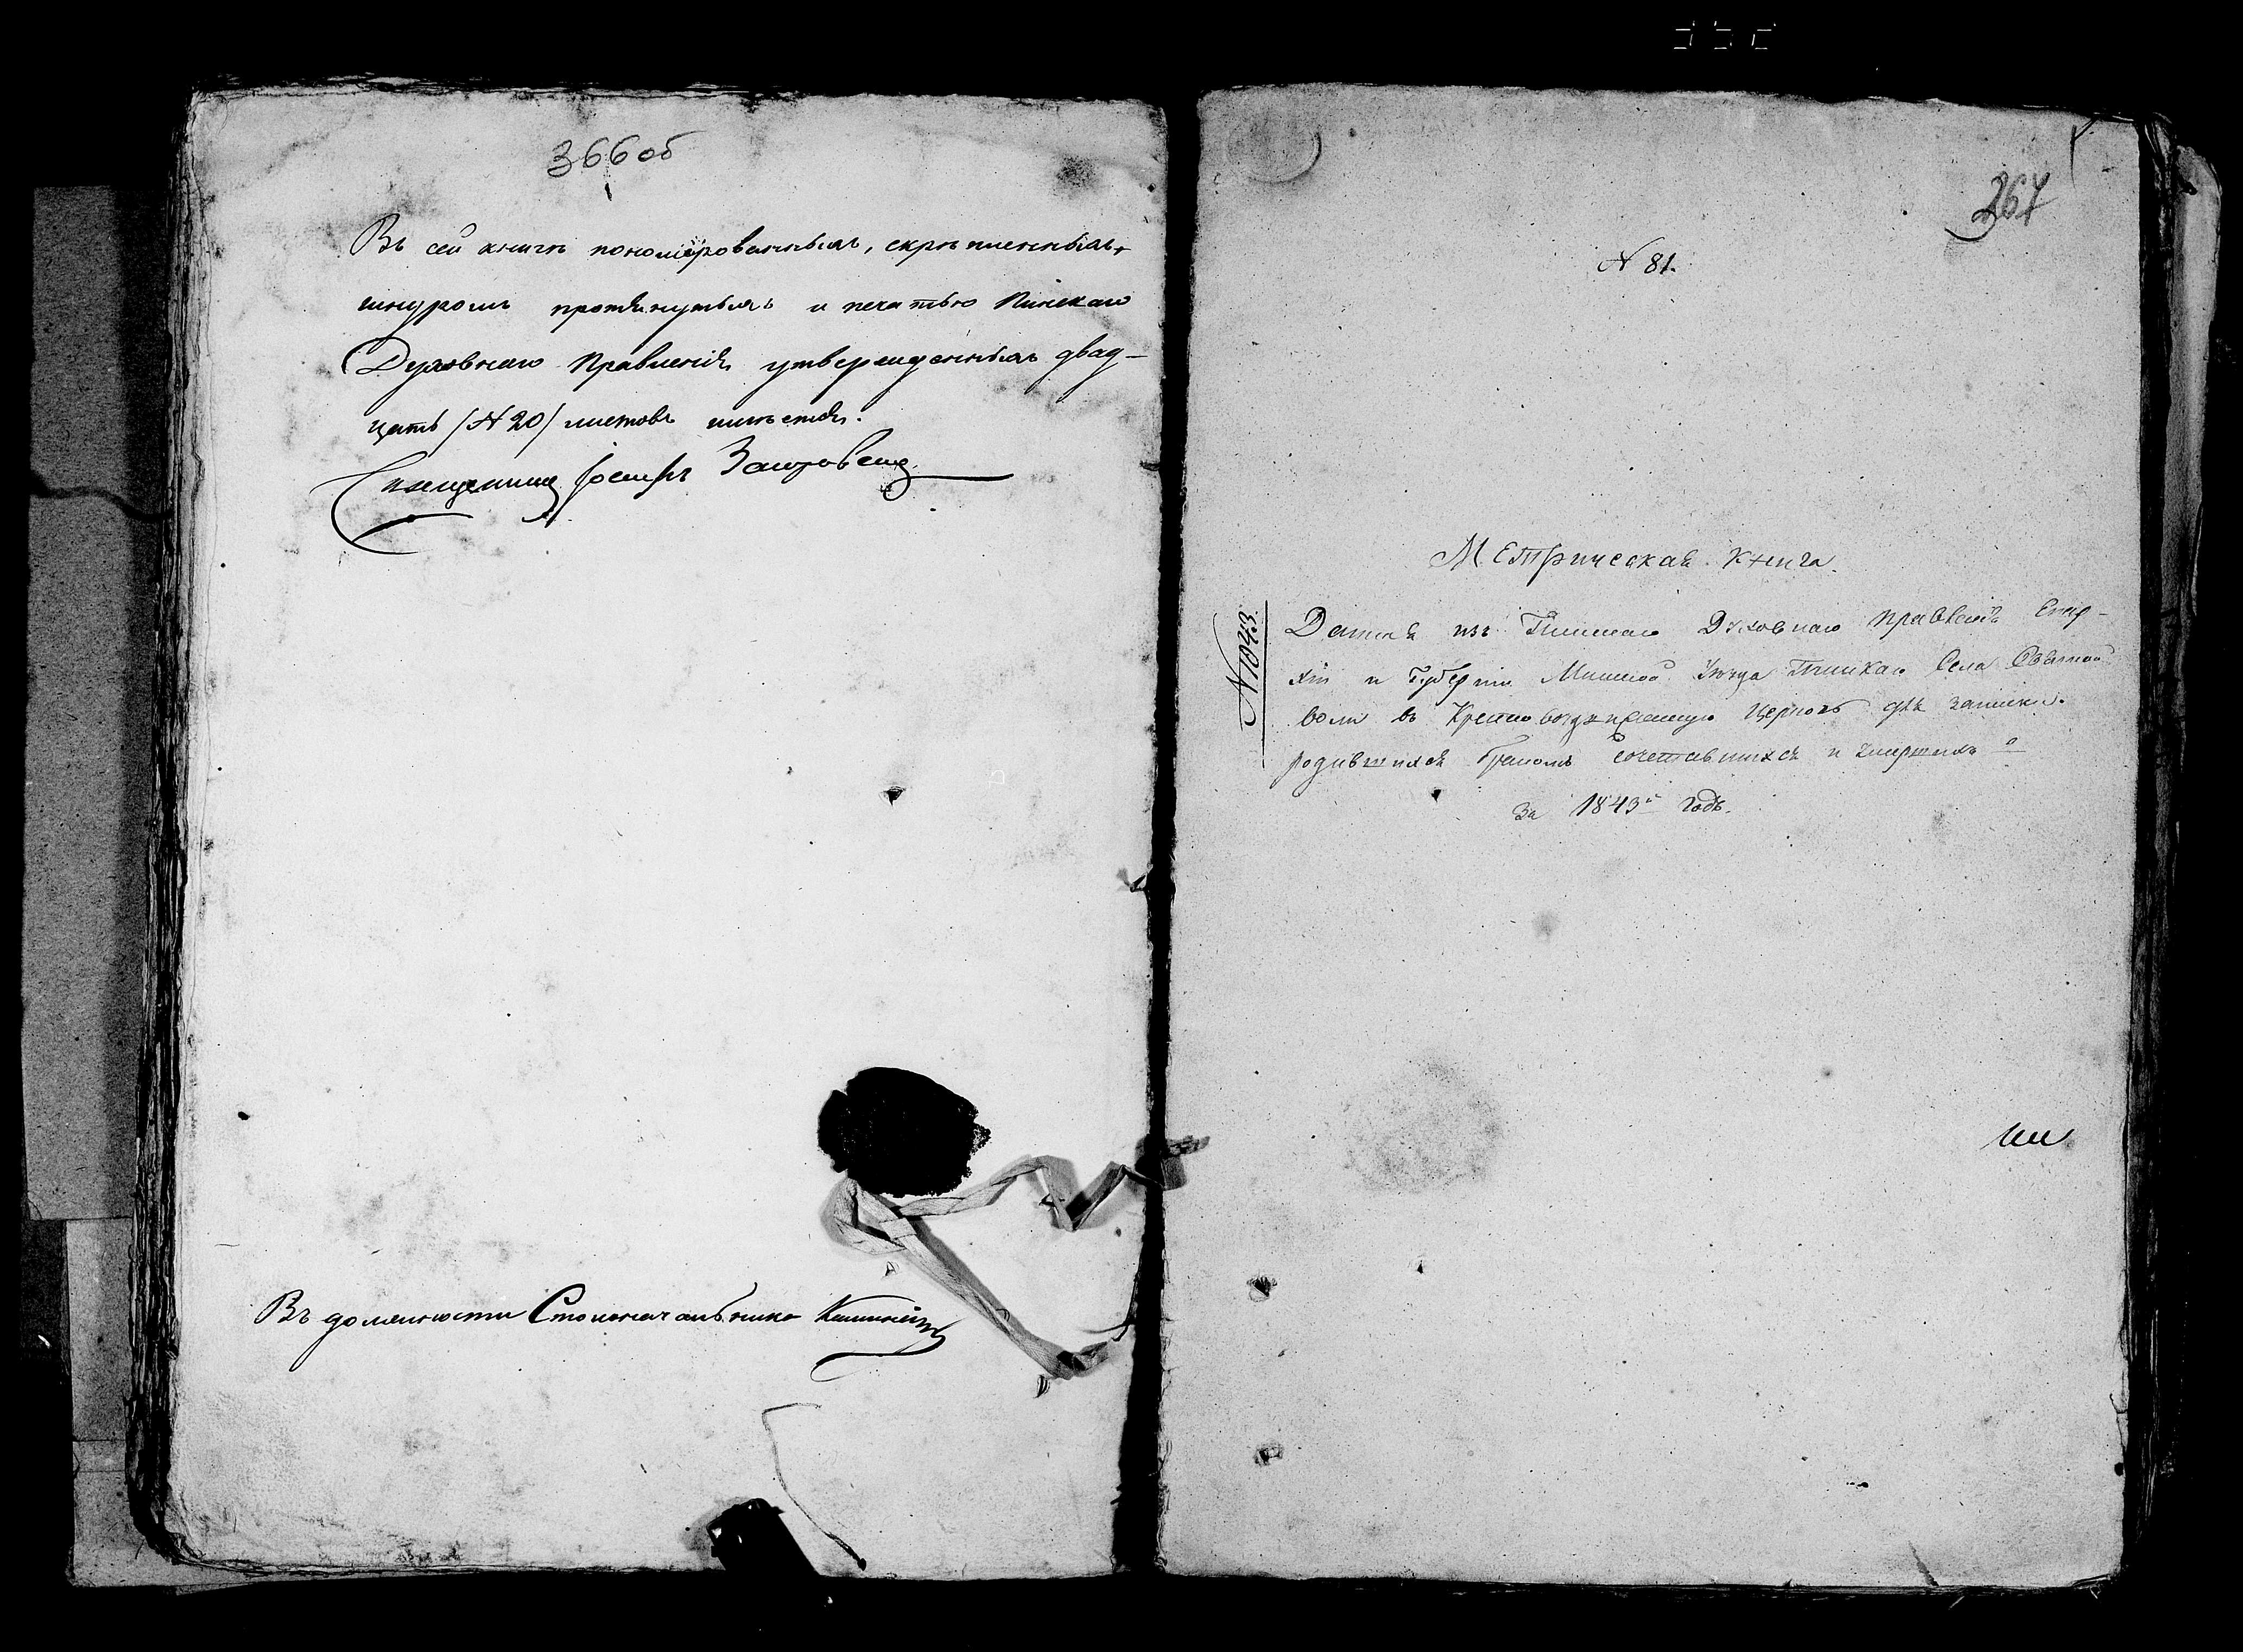 366 об
Въ сей книгѣ пономерованныхъ, скрѣпленныхъ,
шнуромъ протянутыхъ и печатью Пинскаго
Духовнаго Правленія утвержденныхъ двад-
цать /№ 20/ листовъ имѣется.
Священникъ Іосифъ
Въ должности Столоначальника
367
№ 81.
Метрическая книга.
№ 1043.
Данная изъ Пинскаго Духовнаго Правленія Епар-
хіи и Губерніи Минской Уѣзда Пинскаго Села Святой
воли въ Крестовоздвиженскую Церковь для записки
родившихся бракомъ сочетавшихся и умершихъ
за 1843й годъ.